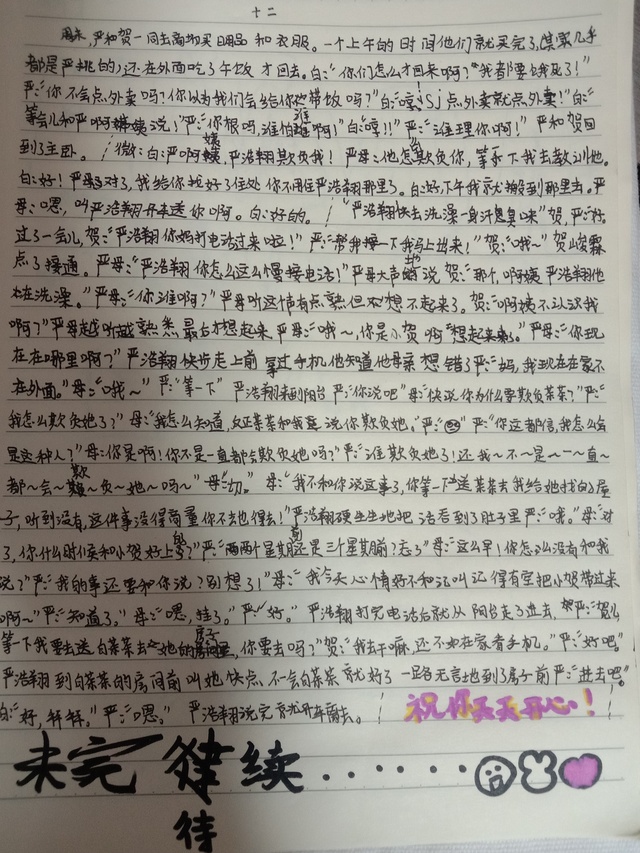 十二
周末,严和贺一同去商场买日用品和衣服。一个上午的时间他们就买完了,其实几乎
都是严挑的,还在外面吃了午饭才回去。白:“你们怎么才回来啊?”我都要饿死了!”
严:“你不会点外卖吗?你以为我们会给你带饭吗?”白:“哼!点外卖就点外卖!”白:“
等会儿和严啊姨说!”严:“你根吗,谁怕谁啊!”白:“哼!!”严:“谁理你啊!”严和贺回
到了主卧。/微:白:严啊姨,严浩翔欺负我!严母:他怎欺负你,等下我去教训他。
白:好!严母:对了,我给你找好了住处你不用住严浩翔那里了。白:好下午我就搬到那里去。严
母:嗯,叫严浩翔开车送你啊。白:好的。/“严浩翔快去洗澡一身汗臭臭味”贺,严:行
过了一会儿,贺:“严浩翔你妈打电话过来啦!”严:“帮我接一下我马上出来!”贺:“哦~”贺峻霖
点了接通。严母:“严浩翔你怎么这么慢接电话!”严母大声地说 贺:“那个,啊姨严浩翔他
在洗澡。”严母:“你谁啊?”严母听这声有点熟但想不起来了。贺:“啊姨不认识我
啊?”严母越听越熟悉最后才想起来 严母:“哦~,你是小贺啊”想起来了。”严母:“你现
在在哪里啊?”严浩翔快步走上前拿过手机他知道他母亲想错了严:“妈,我现在在家不
在外面。”母:“哦~”严:“等一下”严浩翔来到阳台 严:“你说吧”母:“快说你为什么要欺负茶茶?”严:“
我怎么欺负她了?”母:“我怎么知道,反正茶茶和我说你欺负她。”严:严:“你这都信,我怎么会
是这种人?”母:“你是啊!你不是一直都会欺负她吗?”严:“谁欺负她了!还我~不~是~一~直~
都~会~欺~负~她~吗~”母:“切。”母:“我不和你说这事了,你等一下送茶茶去我给她找的屋
子,听到没有,这件事没得商量你不去也得去!”严浩翔硬生生地把话吞到了肚子里 严:“哦。”母:“对
了,你什么时候和小贺好上的?”严:“两个星期还是三个星期前?忘了”母:“这么早!你怎么没有和我
说?”严:“我的事还要和你说?别想了!”母:“我今天心情好不和你叫记得有空把小贺带过来
啊~”严:“知道了。”母:“嗯,挂了。”严:“好。”严浩翔打完电话后就从阳台走了进去,严:“贺儿
等一下我要去送白茶茶去她的房子里,你要去吗?”贺:“我去干嘛,还不如在家看手机。”严:“好吧。”
严浩翔到白茶茶的房间前叫她快点,不一会白茶茶就好了 一路无言地到了房子前 严:“进去吧。”
白:“好,拜拜。”严:“嗯。”严浩翔说完就开车离去。/祝你天天开心!
未完待续......